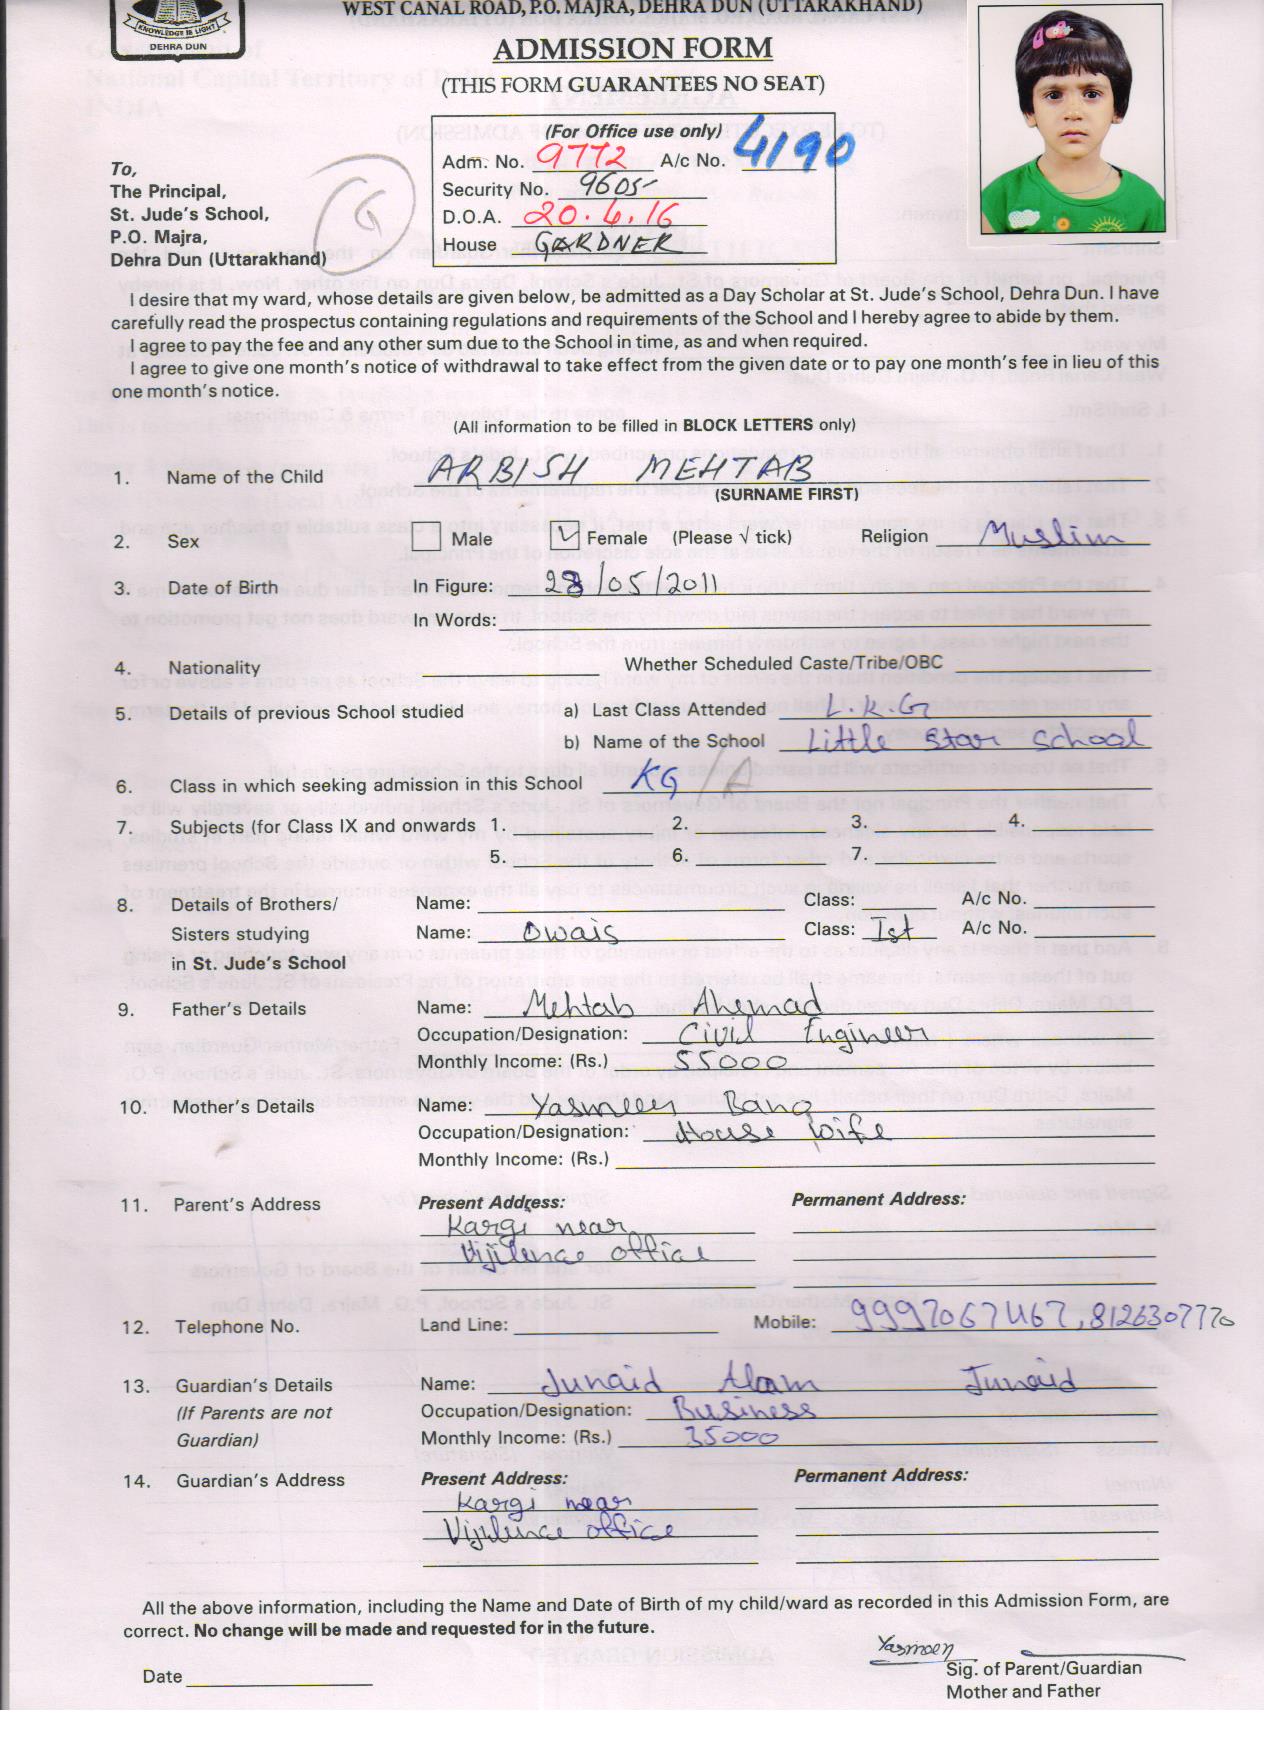 WEST CANAL ROAD, P.O. MAJRA, DEHRA DUN (UTTARAKHAND)
KNOWLEDGE IS LIGHT
DEHRA DUN
ADMISSION FORM
(THIS FORM GUARANTEES NO SEAT)
(For Office use only)
Adm. No. 9772 A/c No. 4190
Security No. 9605
D.O.A. 20.4.16
House GARDNER
G
To,
The Principal,
St. Jude's School,
P.O. Majra,
Dehra Dun (Uttarakhand)
I desire that my ward, whose details are given below, be admitted as a Day Scholar at St. Jude's School, Dehra Dun. I have
carefully read the prospectus containing regulations and requirements of the School and I hereby agree to abide by them.
I agree to pay the fee and any other sum due to the School in time, as and when required.
I agree to give one month's notice of withdrawal to take effect from the given date or to pay one month's fee in lieu of this
one month's notice.
(All information to be filled in BLOCK LETTERS only)
1. Name of the Child ARBISH MEHTAB
(SURNAME FIRST)
2. Sex Male Female (Please √ tick) Religion Muslim
3. Date of Birth In Figure: 28/05/2011
In Words:
4. Nationality Whether Scheduled Caste/Tribe/OBC
5. Details of previous School studied a) Last Class Attended L.K.G
b) Name of the School Little Star School
6. Class in which seeking admission in this School KG /A
7. Subjects (for Class IX and onwards 1. 2. 3. 4.
5. 6. 7.
8. Details of Brothers/ Name: Class: A/c No.
Sisters studying Name: Owais Class: Ist A/c No.
in St. Jude's School
9. Father's Details Name: Mehtab Ahemad
Occupation/Designation: Civil Engineer
Monthly Income: (Rs.) 55000
10. Mother's Details Name: Yasmeen Bano
Occupation/Designation: House wife
Monthly Income: (Rs.)
11. Parent's Address Present Address: Permanent Address:
Kargi near
Vijilence office
12. Telephone No. Land Line: Mobile: 9997067467, 8126307770
13. Guardian's Details Name: Junaid Alam Junaid
(If Parents are not Occupation/Designation: Business
Guardian) Monthly Income: (Rs.) 35000
14. Guardian's Address Present Address: Permanent Address:
Kargi near
Vijilence office
All the above information, including the Name and Date of Birth of my child/ward as recorded in this Admission Form, are
correct. No change will be made and requested for in the future.
Yasmeen
Date Sig. of Parent/Guardian
Mother and Father